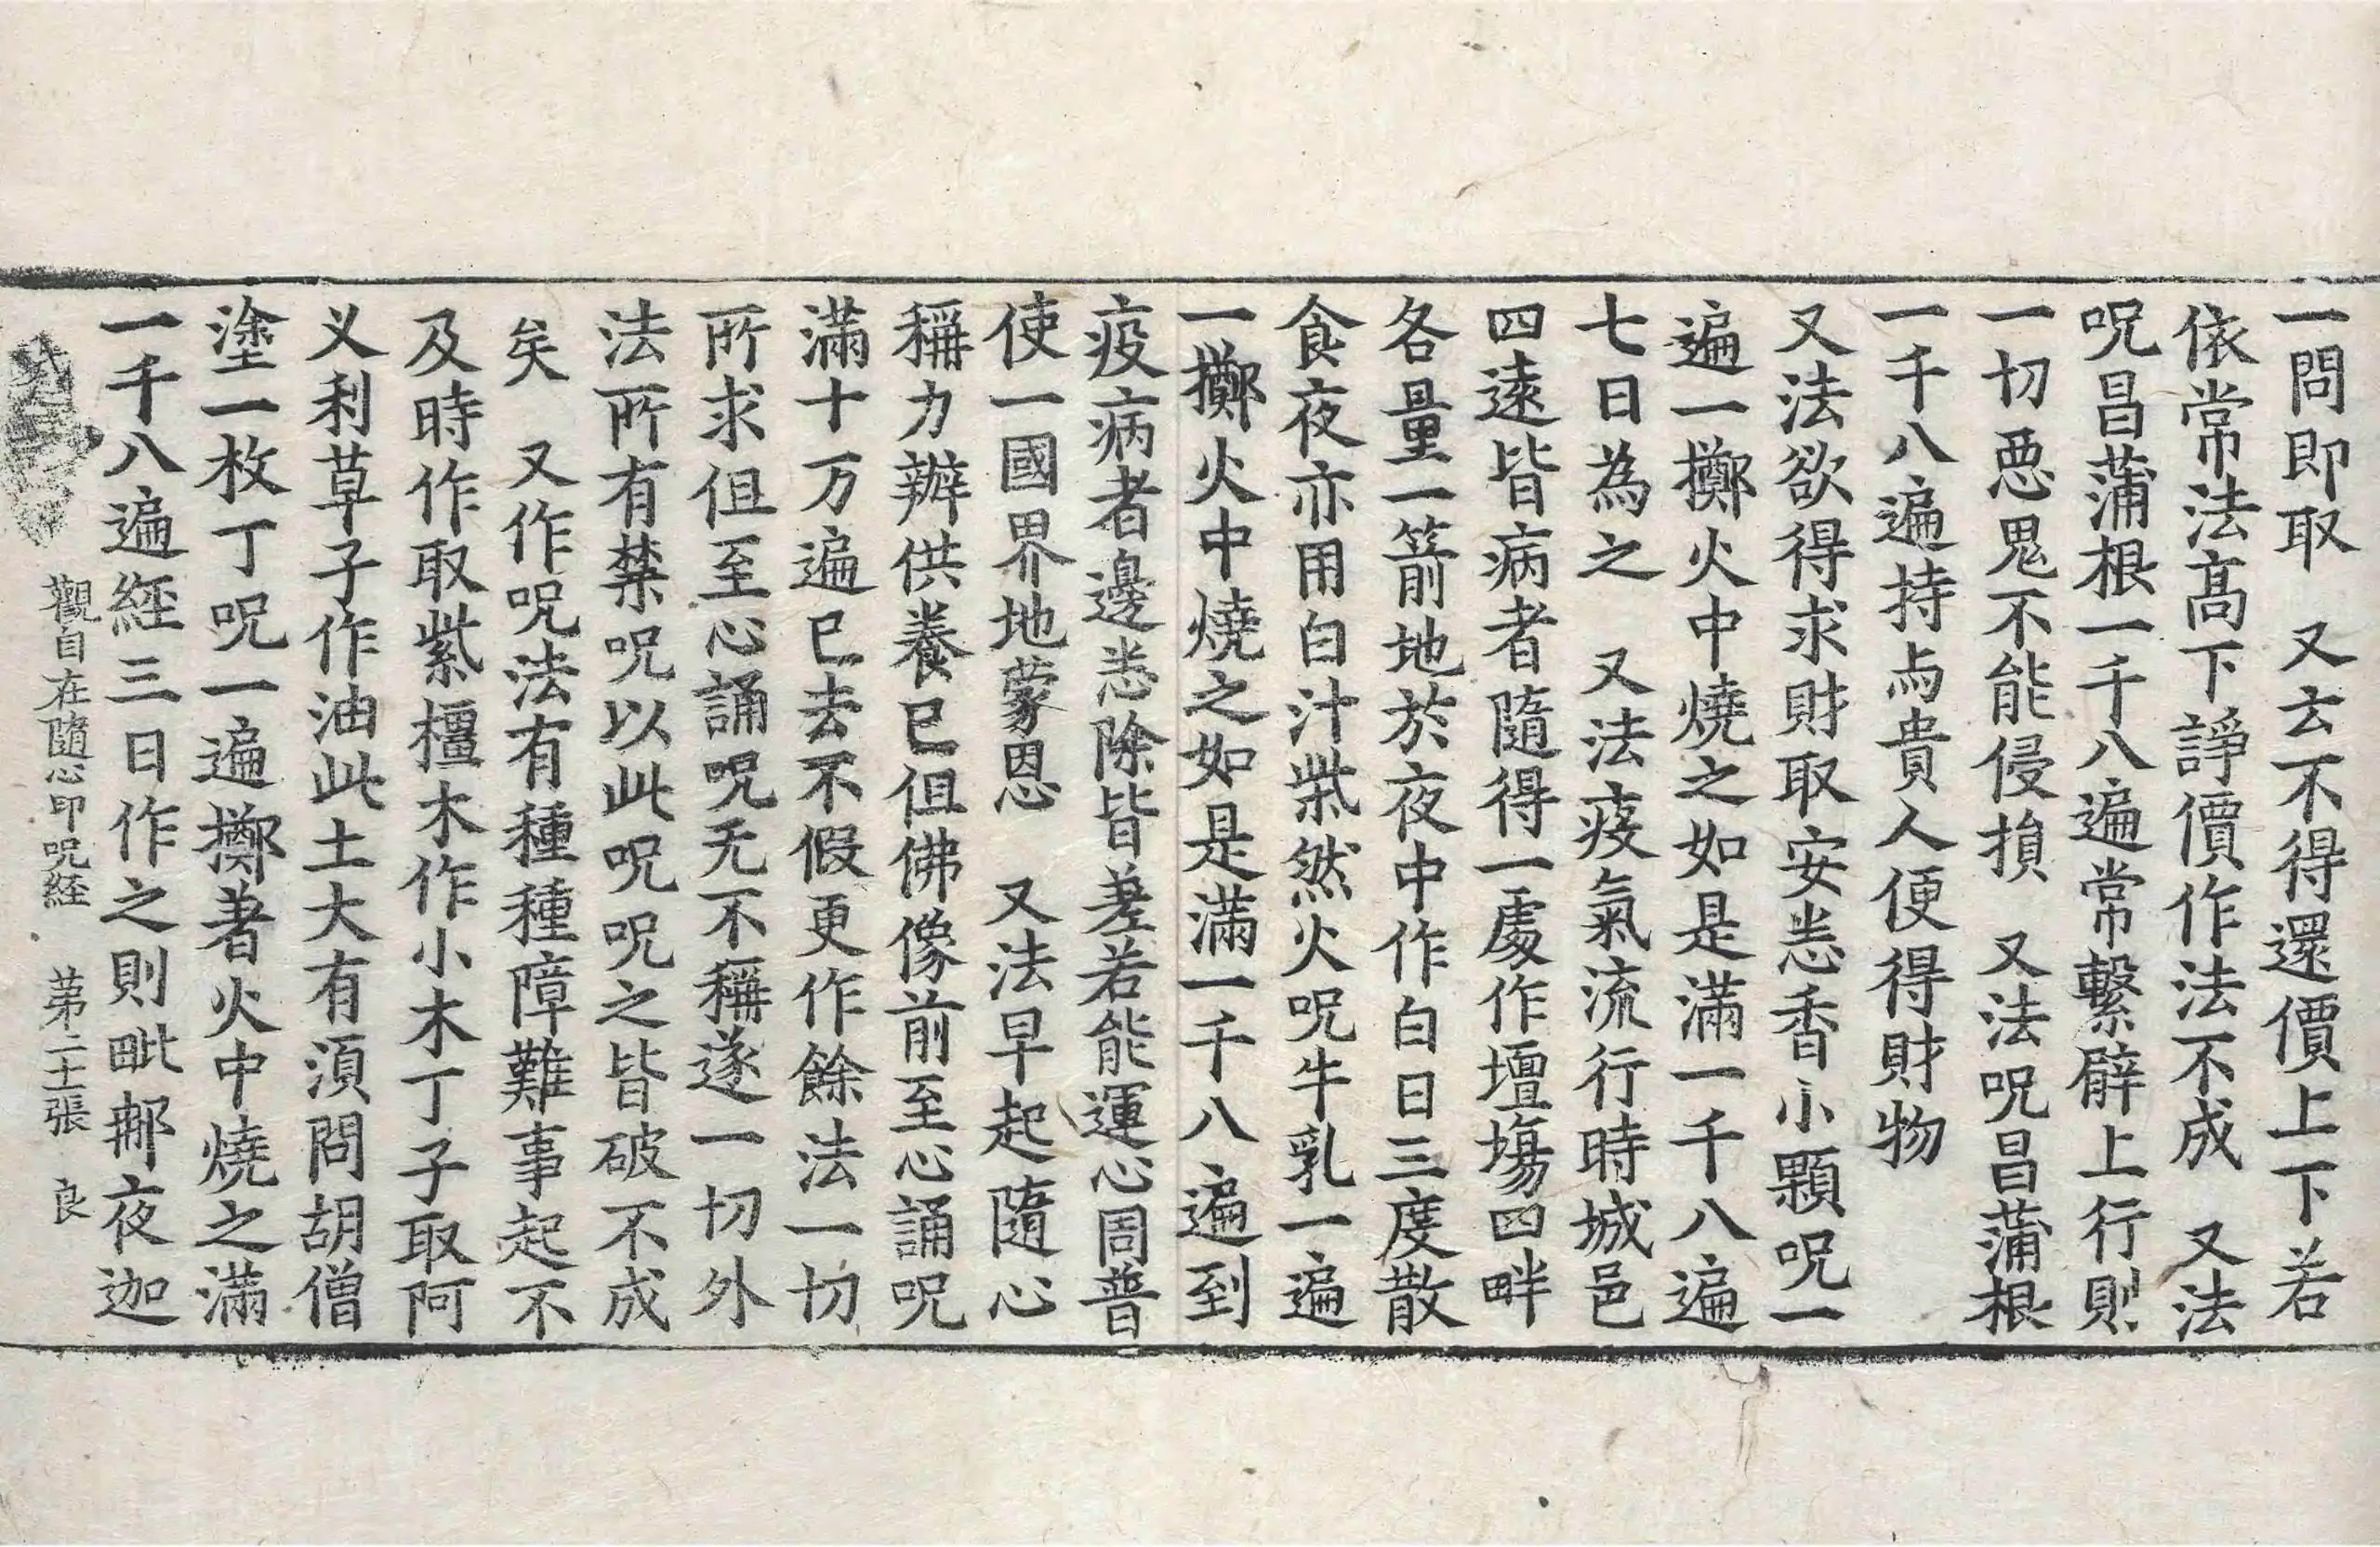 一問即取　又去不得還價上下若
依常法高下諍價作法不成　又法
呪昌蒲根一千八遍常繫臂上行則
一切惡鬼不能侵損　又法呪昌蒲根
一千八遍持与貴人便得財物
又法欲得求財取安悉香小顆呪一
遍一擲火中燒之如是滿一千八遍
七日為之　又法疫氣流行時城邑
四遠皆病者隨得一處作壇塲四畔
各量一箭地於夜中作白日三度散
食夜亦用白汁柴然火呪牛乳一遍
一擲火中燒之如是滿一千八遍到
疫病者邊悉除皆差若能運心周普
使一國界地蒙恩　又法早起隨心
稱力辦供養已但佛像前至心誦呪
滿十万遍已去不假更作餘法一切
所求但至心誦呪无不稱遂一切外
法所有禁呪以此呪呪之皆破不成
矣　又作呪法有種種障難事起不
及時作取紫橿木作小木丁子取阿
乂利草子作油此土大有須問胡僧
塗一枚丁呪一遍擲著火中燒之滿
一千八遍經三日作之則毗那夜迦
觀自在隨心印呪経　苐二十張　良